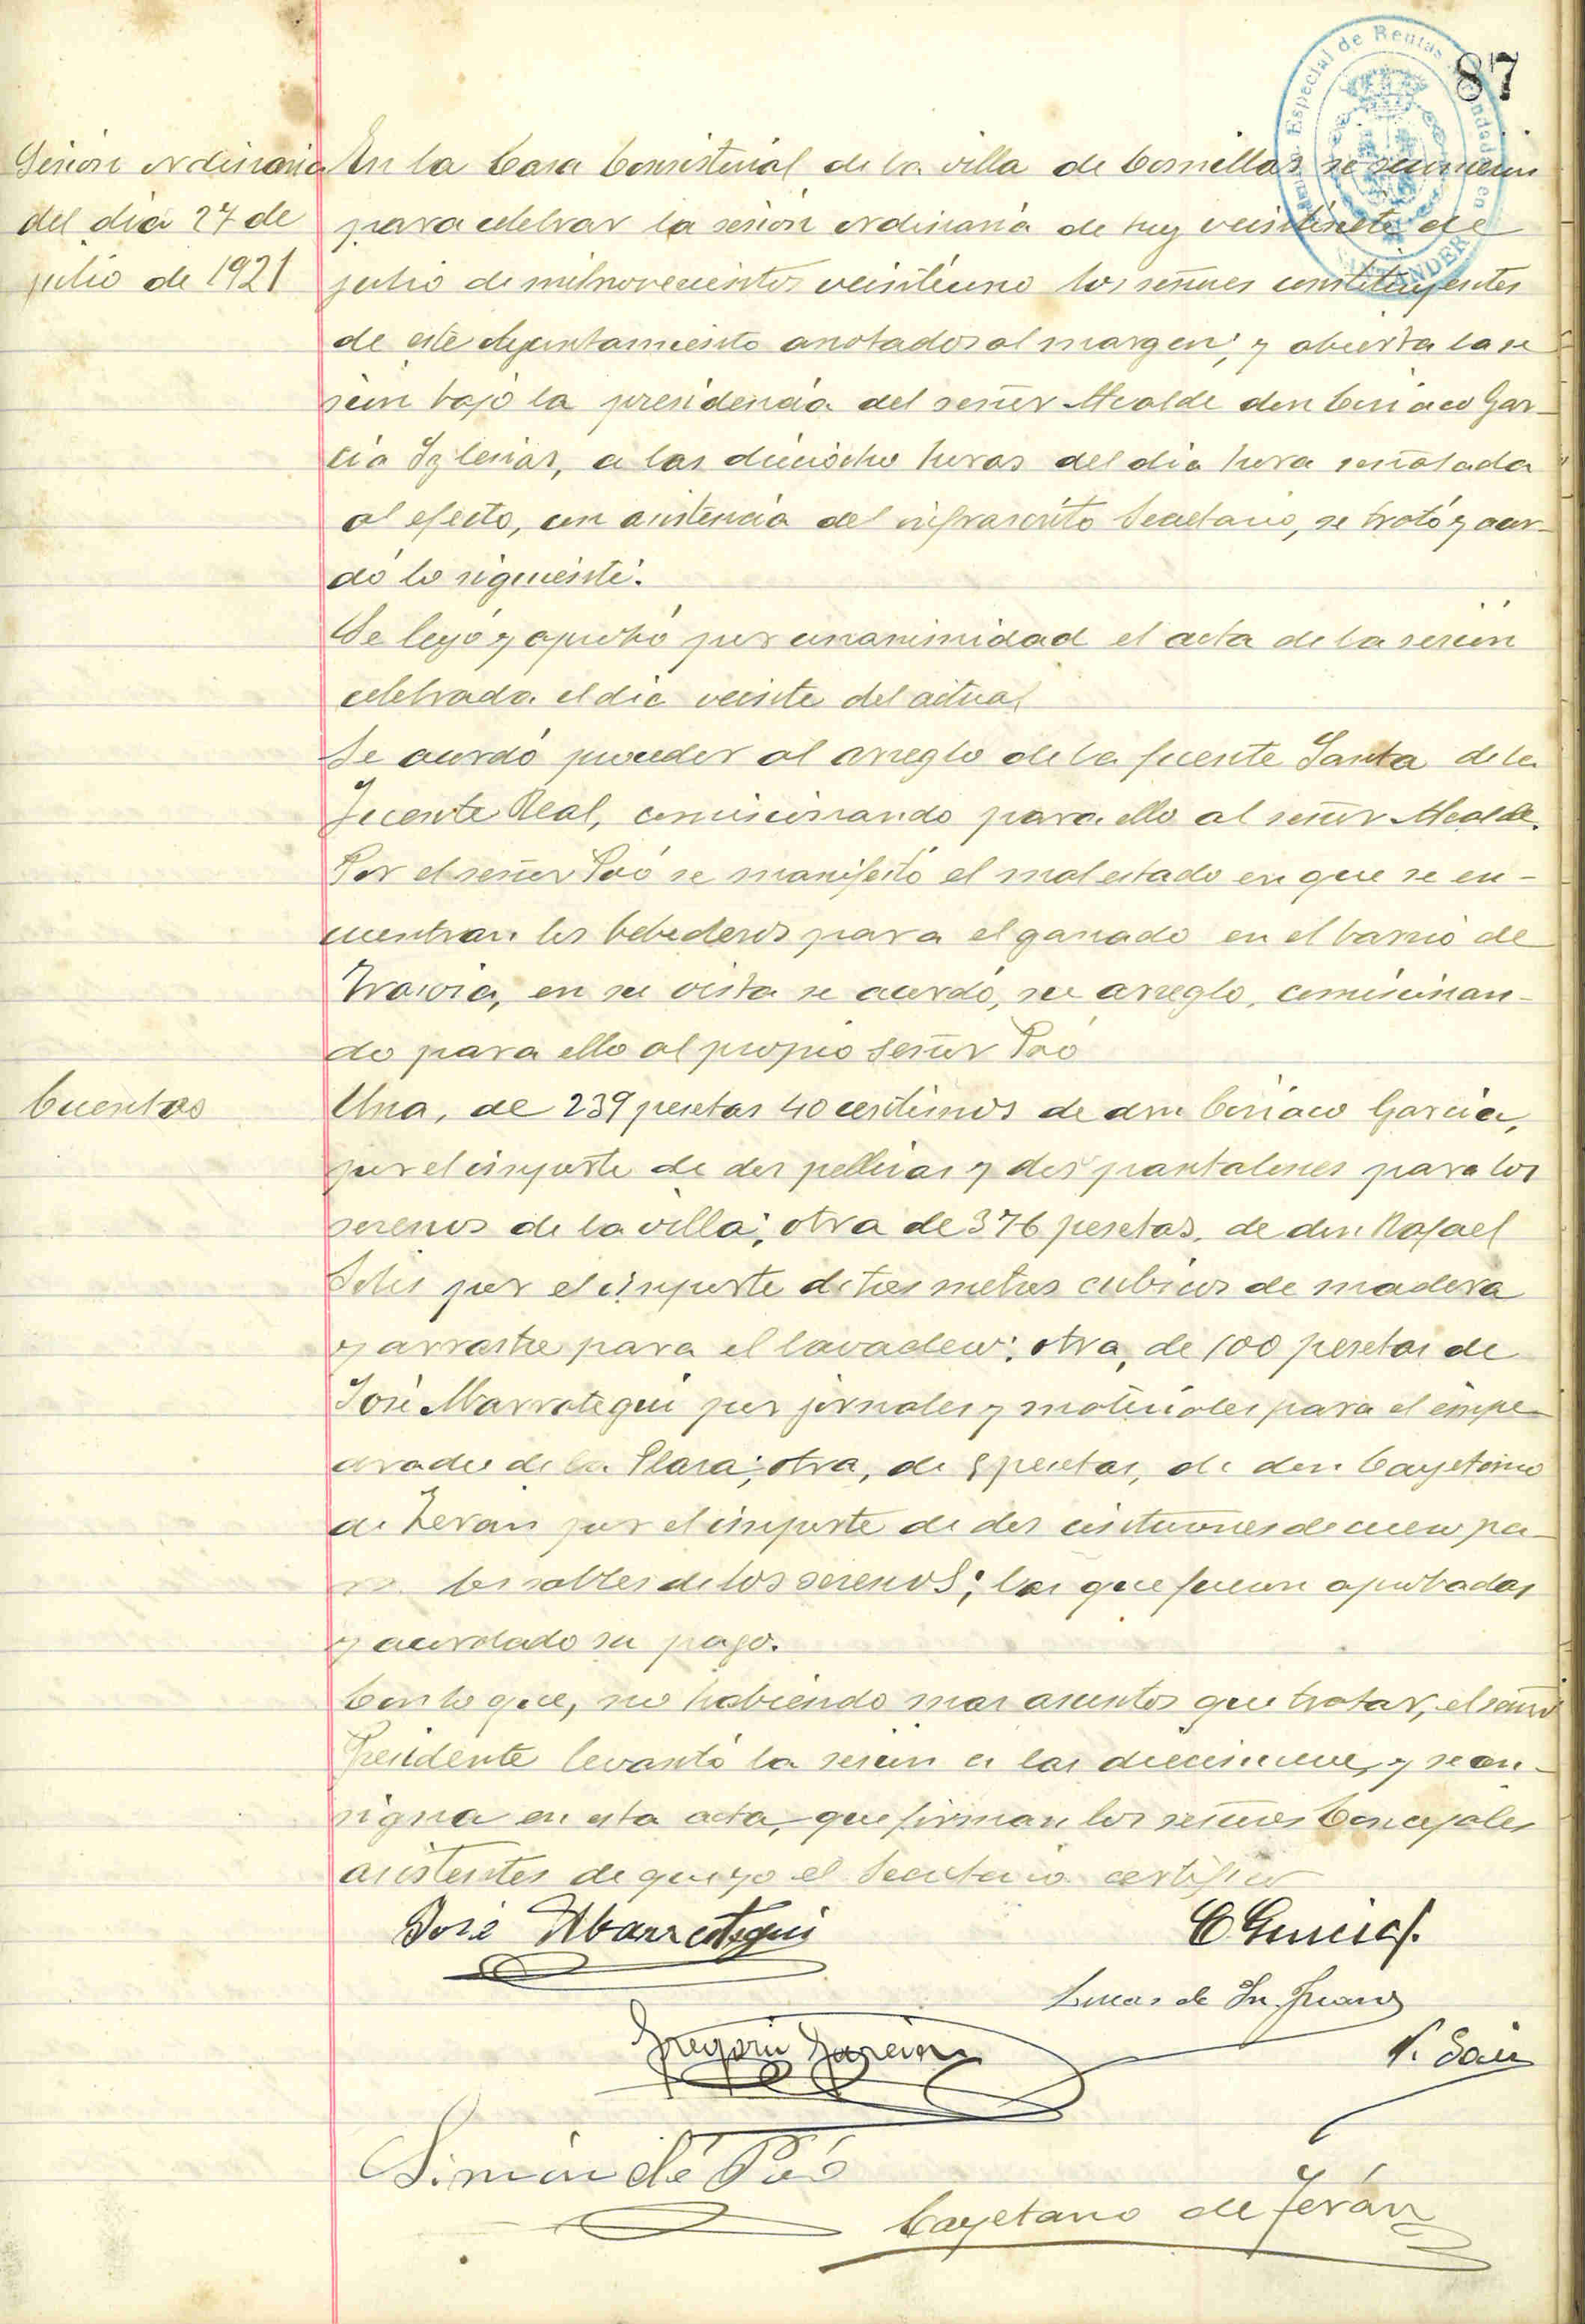 87
Especial de Rentas
SANTANDER
Sesión ordinaria
del dia 27 de
julio de 1921
En la Casa Consistorial de la villa de Comillas se reunieron
para celebrar la sesión ordinaria de hoy veintisiete de
julio de mil novecientos veintiuno los señores constituyentes
de este Ayuntamiento anotados al margen; y abierta la se
sión bajo la presidencia del señor Alcalde don Ciriaco Gar-
cia Iglesias, a las dieciocho horas del dia hora señalada
al efecto, con asistencia del infrascrito Secretario, se trató y acor-
dó lo siguiente:
Se leyó y aprobó por unanimidad el acta de la sesión
celebrada el dia veinte del actual
Se acordó proceder al arreglo de la fuente Santa de la
Fuente Real, comisionando para ello al señor Alcalde.
Por el señor Póo se manifestó el mal estado en que se en-
cuentran los bebederos para el ganado en el barrio de
en su vista se acordó, su arreglo, comisionan-
do para ello al propio señor Póo
Cuentas
Una, de 239 pesetas 40 centimos de don Ciriaco Garcia,
por el importe de dos pellizas y dos pantalones para los
serenos de la villa; otra de 376 pesetas, de don Rafael
Solis por el importe de tres metros cubicos de madera
y arrastre para el lavadero; otra, de 100 pesetas de
José Abarrategui por jornales y materiales para el empe-
drado de la Plaza; otra, de 8 pesetas, de don Cayetano
de Teran por el importe de dos cinturones de cuero pa-
ra los sables de los serenos; las que fueron aprobadas
y acordado su pago.
Con lo que, no habiendo mas asuntos que tratar, el señor
Presidente levantó la sesión a las diecinueve, y se con-
signa en esta acta, que firman los señores Concejales
asistentes de que yo el Secretario certifico
José Abarrategui
C Garcia
Lucas de Sn. Juan
Gregorio Garcia
Simón de Póo
Cayetano de Terán